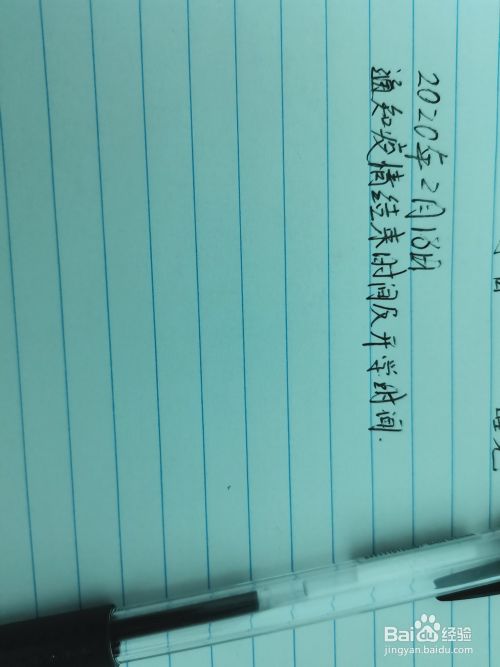 2020年2月18日
通知疫情结束时间及开学时间.
Baidu经验
jingyan.baidu.com